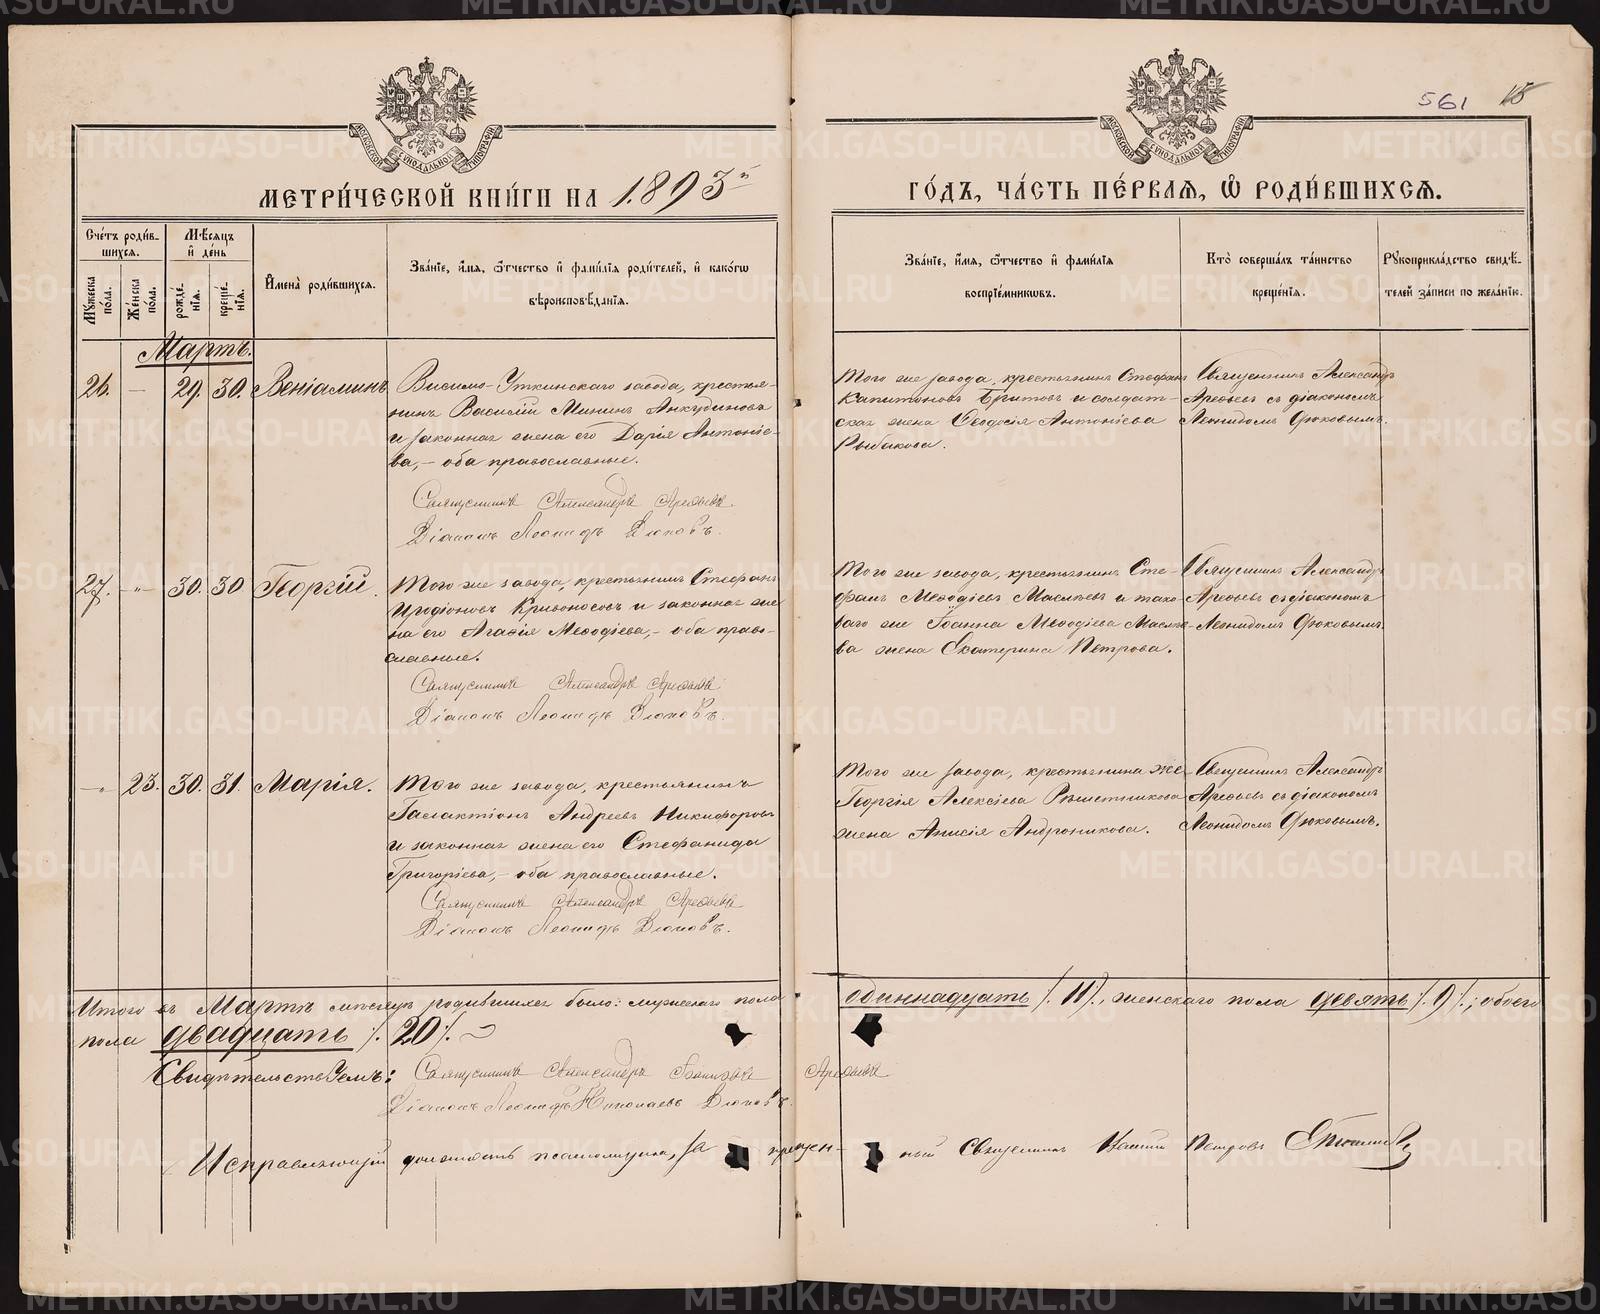 561 18
МОСКОВСКОЙ СУНОДАЛЬНОЙ ТИПОГРАФІИ
МОСКОВСКОЙ СУНОДАЛЬНОЙ ТИПОГРАФІИ
МЕТРИ́ЧЕСКОЙ КНИ́ГИ НА 1893й
ГО́ДЪ, ЧА́СТЬ ПЕ́РВАѦ, Ѡ РОДИ́ВШИХСѦ.
Сче́тъ роди́в-
шихсѧ.
Мѣ́сѧцъ
и́ де́нь
Мꙋ́жеска по́ла.
Же́нска по́ла.
рожде́-нїѧ.
креще́-нїѧ.
И҆мена̀ роди́вшихсѧ.
Зва́нїе, и҆́мѧ, ѻ҆́тчество и҆ фами́лїѧ роди́телей, и҆ како́гѡ
вѣроисповѣ́данїѧ.
Зва́нїе, и҆́мѧ, ѻ҆́тчество и҆ фами́лїѧ
воспрїе́мникѡвъ.
Кто̀ соверша́лъ та́инство
креще́нїѧ.
Рꙋкоприкла́дство свидѣ́-
телей за́писи по жела́нїю.
Мартъ.
26. — 29. 30. Веніаминъ
Висимо-Уткинскаго завода, крестья-
нинъ Василій Мининъ Анкудиновъ
и законная жена его Дарія Антоніе-
ва, — оба православные.
Священникъ Александръ Арефьевъ.
Діаконъ Леонидъ Дюковъ.
Того же завода, крестьянинъ Стефанъ
Капитоновъ Бритовъ и солдат-
ская жена Евдокія Антоніева
Рыбакова.
Священникъ Александръ
Арефьевъ съ діакономъ
Леонидомъ Дюковымъ.
27. -"- 30. 30 Георгій.
Того же завода, крестьянинъ Стефанъ
Иродіоновъ Кривоносовъ и законная же-
на его Агафія Мефодіева, — оба право-
славные.
Священникъ Александръ Арефьевъ
Діаконъ Леонидъ Дюковъ.
Того же завода, крестьянинъ Сте-
фанъ Мефодіевъ Масляевъ и тако-
ваго же Іоанна Мефодіева Масляе-
ва жена Екатерина Петрова.
Священникъ Александръ
Арефьевъ съ діакономъ
Леонидомъ Дюковымъ.
-"- 23. 30. 31. Марія.
Того же завода, крестьянинъ
Галактіонъ Андреевъ Никифоровъ
и законная жена его Стефанида
Григоріева, — оба православные.
Священникъ Александръ Арефьевъ
Діаконъ Леонидъ Дюковъ.
Того же завода, крестьянина же
Георгія Алексіева Решетникова
жена Анисія Андроникова.
Священникъ Александръ
Арефьевъ съ діакономъ
Леонидомъ Дюковымъ.
Итого въ Мартѣ мѣсяцѣ родившихся было: мужескаго пола одиннадцать /. 11 /., женскаго пола девять /. 9 /.; обоего
пола двадцать /. 20 /.
Свидѣтельствуемъ: Священникъ Александръ Іоанновъ Арефьевъ
Діаконъ Леонидъ Николаевъ Дюковъ.
Исправляющій должность псаломщика, запрещен-ный Священникъ Петровъ